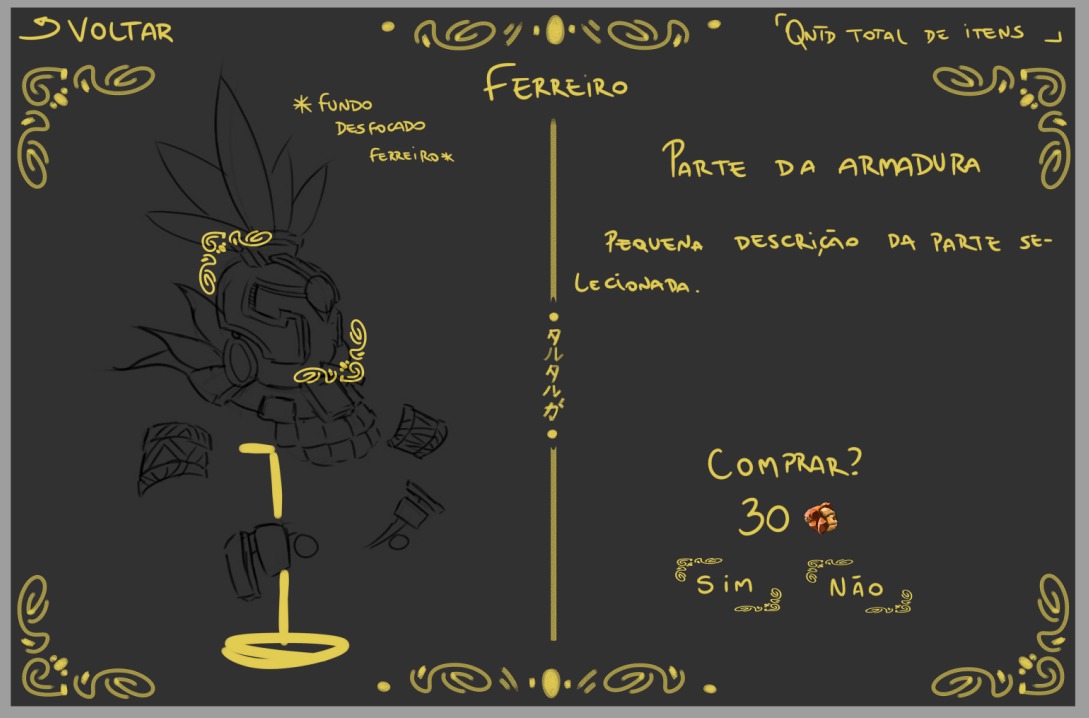 VOLTAR
「QNTD TOTAL DE ITENS 」
FERREIRO
* FUNDO
DESFOCADO
FERREIRO *
PARTE DA ARMADURA
PEQUENA DESCRIÇÃO DA PARTE SE-
LECIONADA.
タルタルガ
COMPRAR?
30
SIM
NÃO